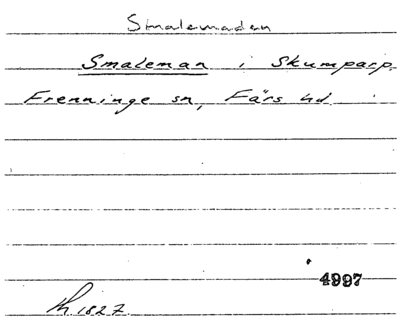 Smalemaden
Smaleman i Skumparp,
Frenninge sn, Färs hd
4997
1827